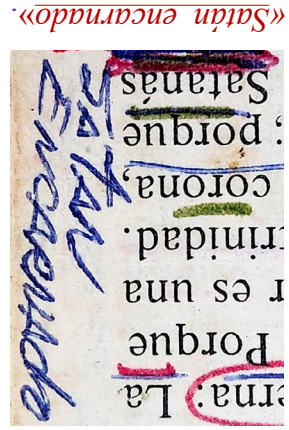 erna: La
Porque
r es una
trinidad.
corona,
; porque
Satanás
SATAN
ENCARNADO
«Satán encarnado».